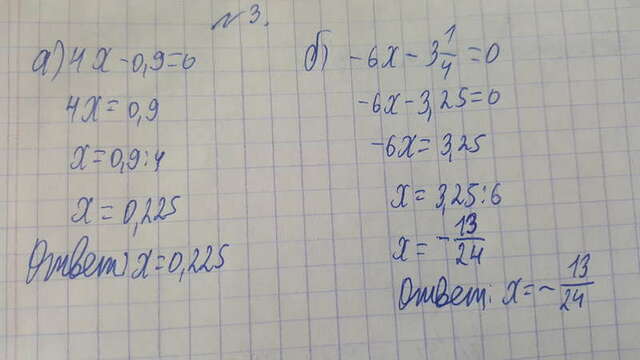 № 3.
а) 4x - 0,9 = 0
4x = 0,9
x = 0,9 : 4
x = 0,225
Ответ: x = 0,225
б) -6x - 3 1/4 = 0
-6x - 3,25 = 0
-6x = 3,25
x = 3,25 : 6
x = - 13/24
Ответ: x = - 13/24